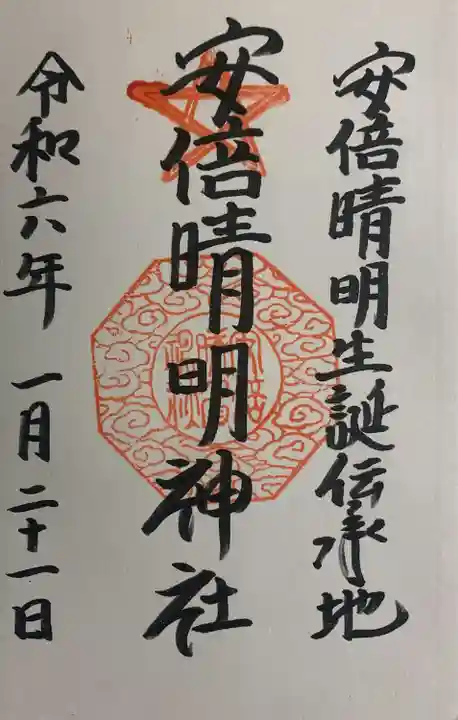 安倍晴明生誕伝承地
安倍晴明神社
令和六年 一月二十一日